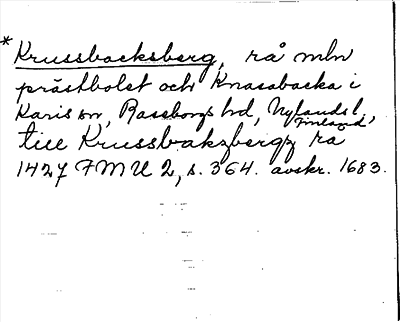 * Krussbacksberg, rå mln
prästbolet och Knasabacka i
Karis sn, Raseborgs hd, Nylands l,
Finland
till Krussbakzbergz ra
1427 FMU 2, s. 364. avskr. 1683.